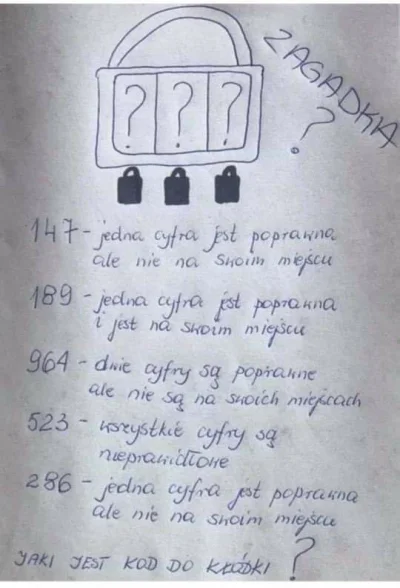 ZAGADKA ?
? ? ?
147 - jedna cyfra jest poprawna
ale nie na swoim miejscu
189 - jedna cyfra jest poprawna
i jest na swoim miejscu
964 - dwie cyfry są poprawne
ale nie są na swoich miejscach
523 - wszystkie cyfry są
nieprawidłowe
286 - jedna cyfra jest poprawna
ale nie na swoim miejscu
JAKI JEST KOD DO KŁÓDKI ?